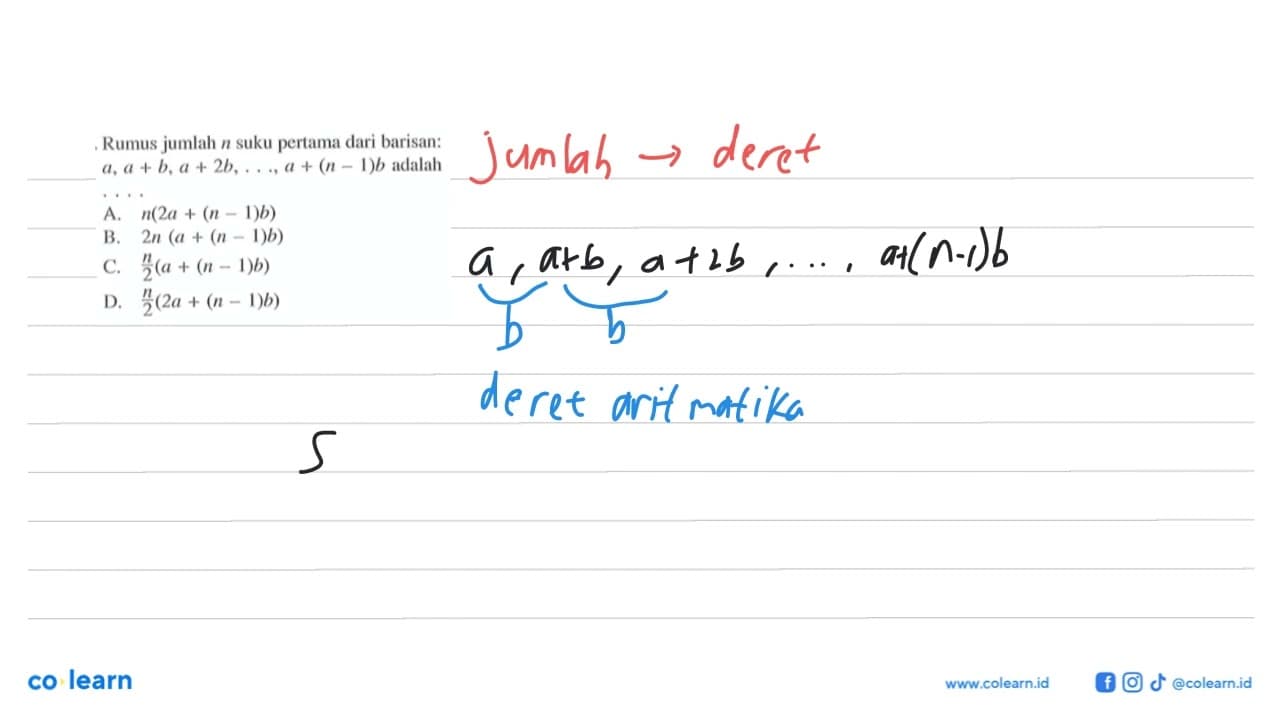 . Rumus jumlah n suku pertama dari barisan:
a, a + b, a + 2b, . . ., a + (n – 1)b adalah
. . . .
A. n(2a + (n – 1)b)
B. 2n (a + (n – 1)b)
C. n/2(a + (n – 1)b)
D. n/2(2a + (n – 1)b)
jumlah → deret
a, a+b, a+2b, ..., a+(n-1)b
b b
deret aritmatika
S
co learn
www.colearn.id
@colearn.id